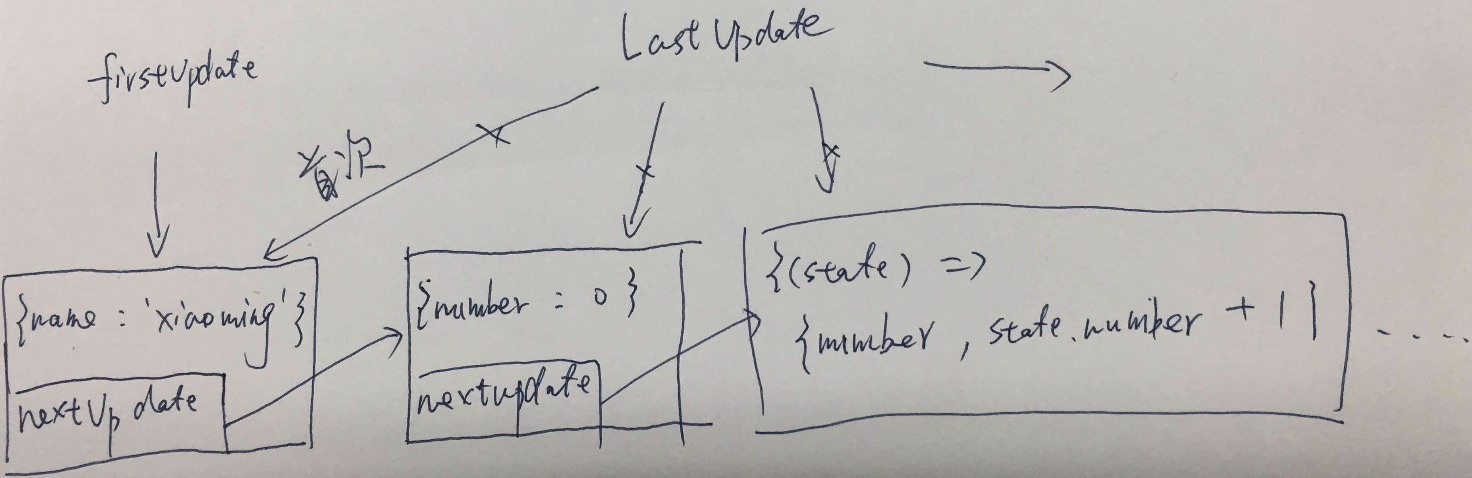 firstUpdate
Last Update
首次
{name : 'xiaoming'}
nextUpdate
{number : 0 }
nextupdate
{(state) =>
{number , state.number + 1 }
.....